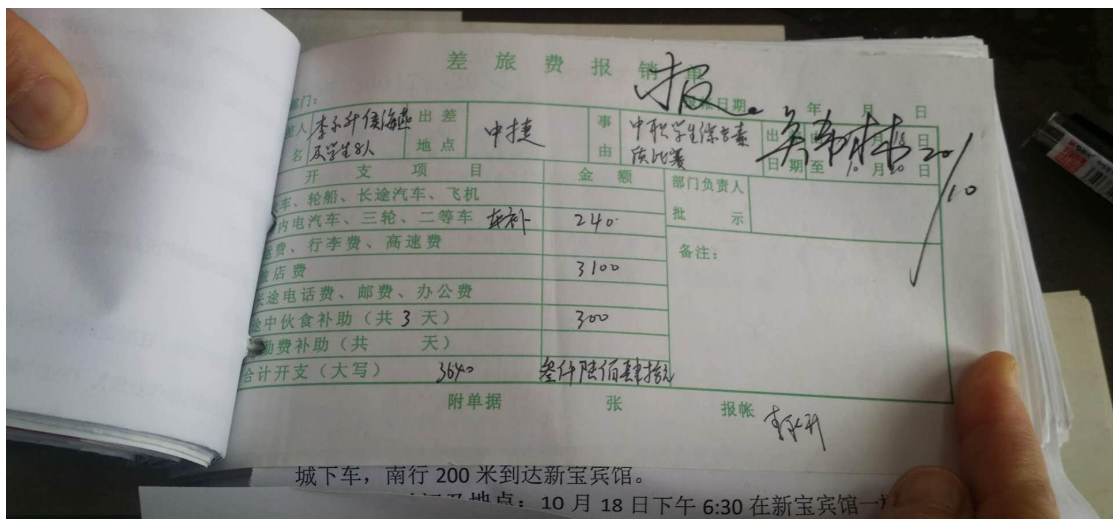 差 旅 费 报 销 单
报
部门：
日期 年 月 日
李永升 侯海燕
及学生8人
出差
地点
中捷
事
由
中职学生综合素
质比赛
出
日期
月18日
至10月20日
20/10
名
开 支 项 目
金 额
部门负责人
批 示
车、轮船、长途汽车、飞机
内电汽车、三轮、二等车 车补
240.
费、行李费、高速费
备注：
店费
3100
长途电话费、邮费、办公费
途中伙食补助（共 3 天）
300
勤费补助（共 天）
合计开支（大写） 3640 叁仟陆佰肆拾元
附单据 张 报帐 李永升
城下车，南行 200 米到达新宝宾馆。
地点：10 月 18 日下午 6:30 在新宝宾馆一